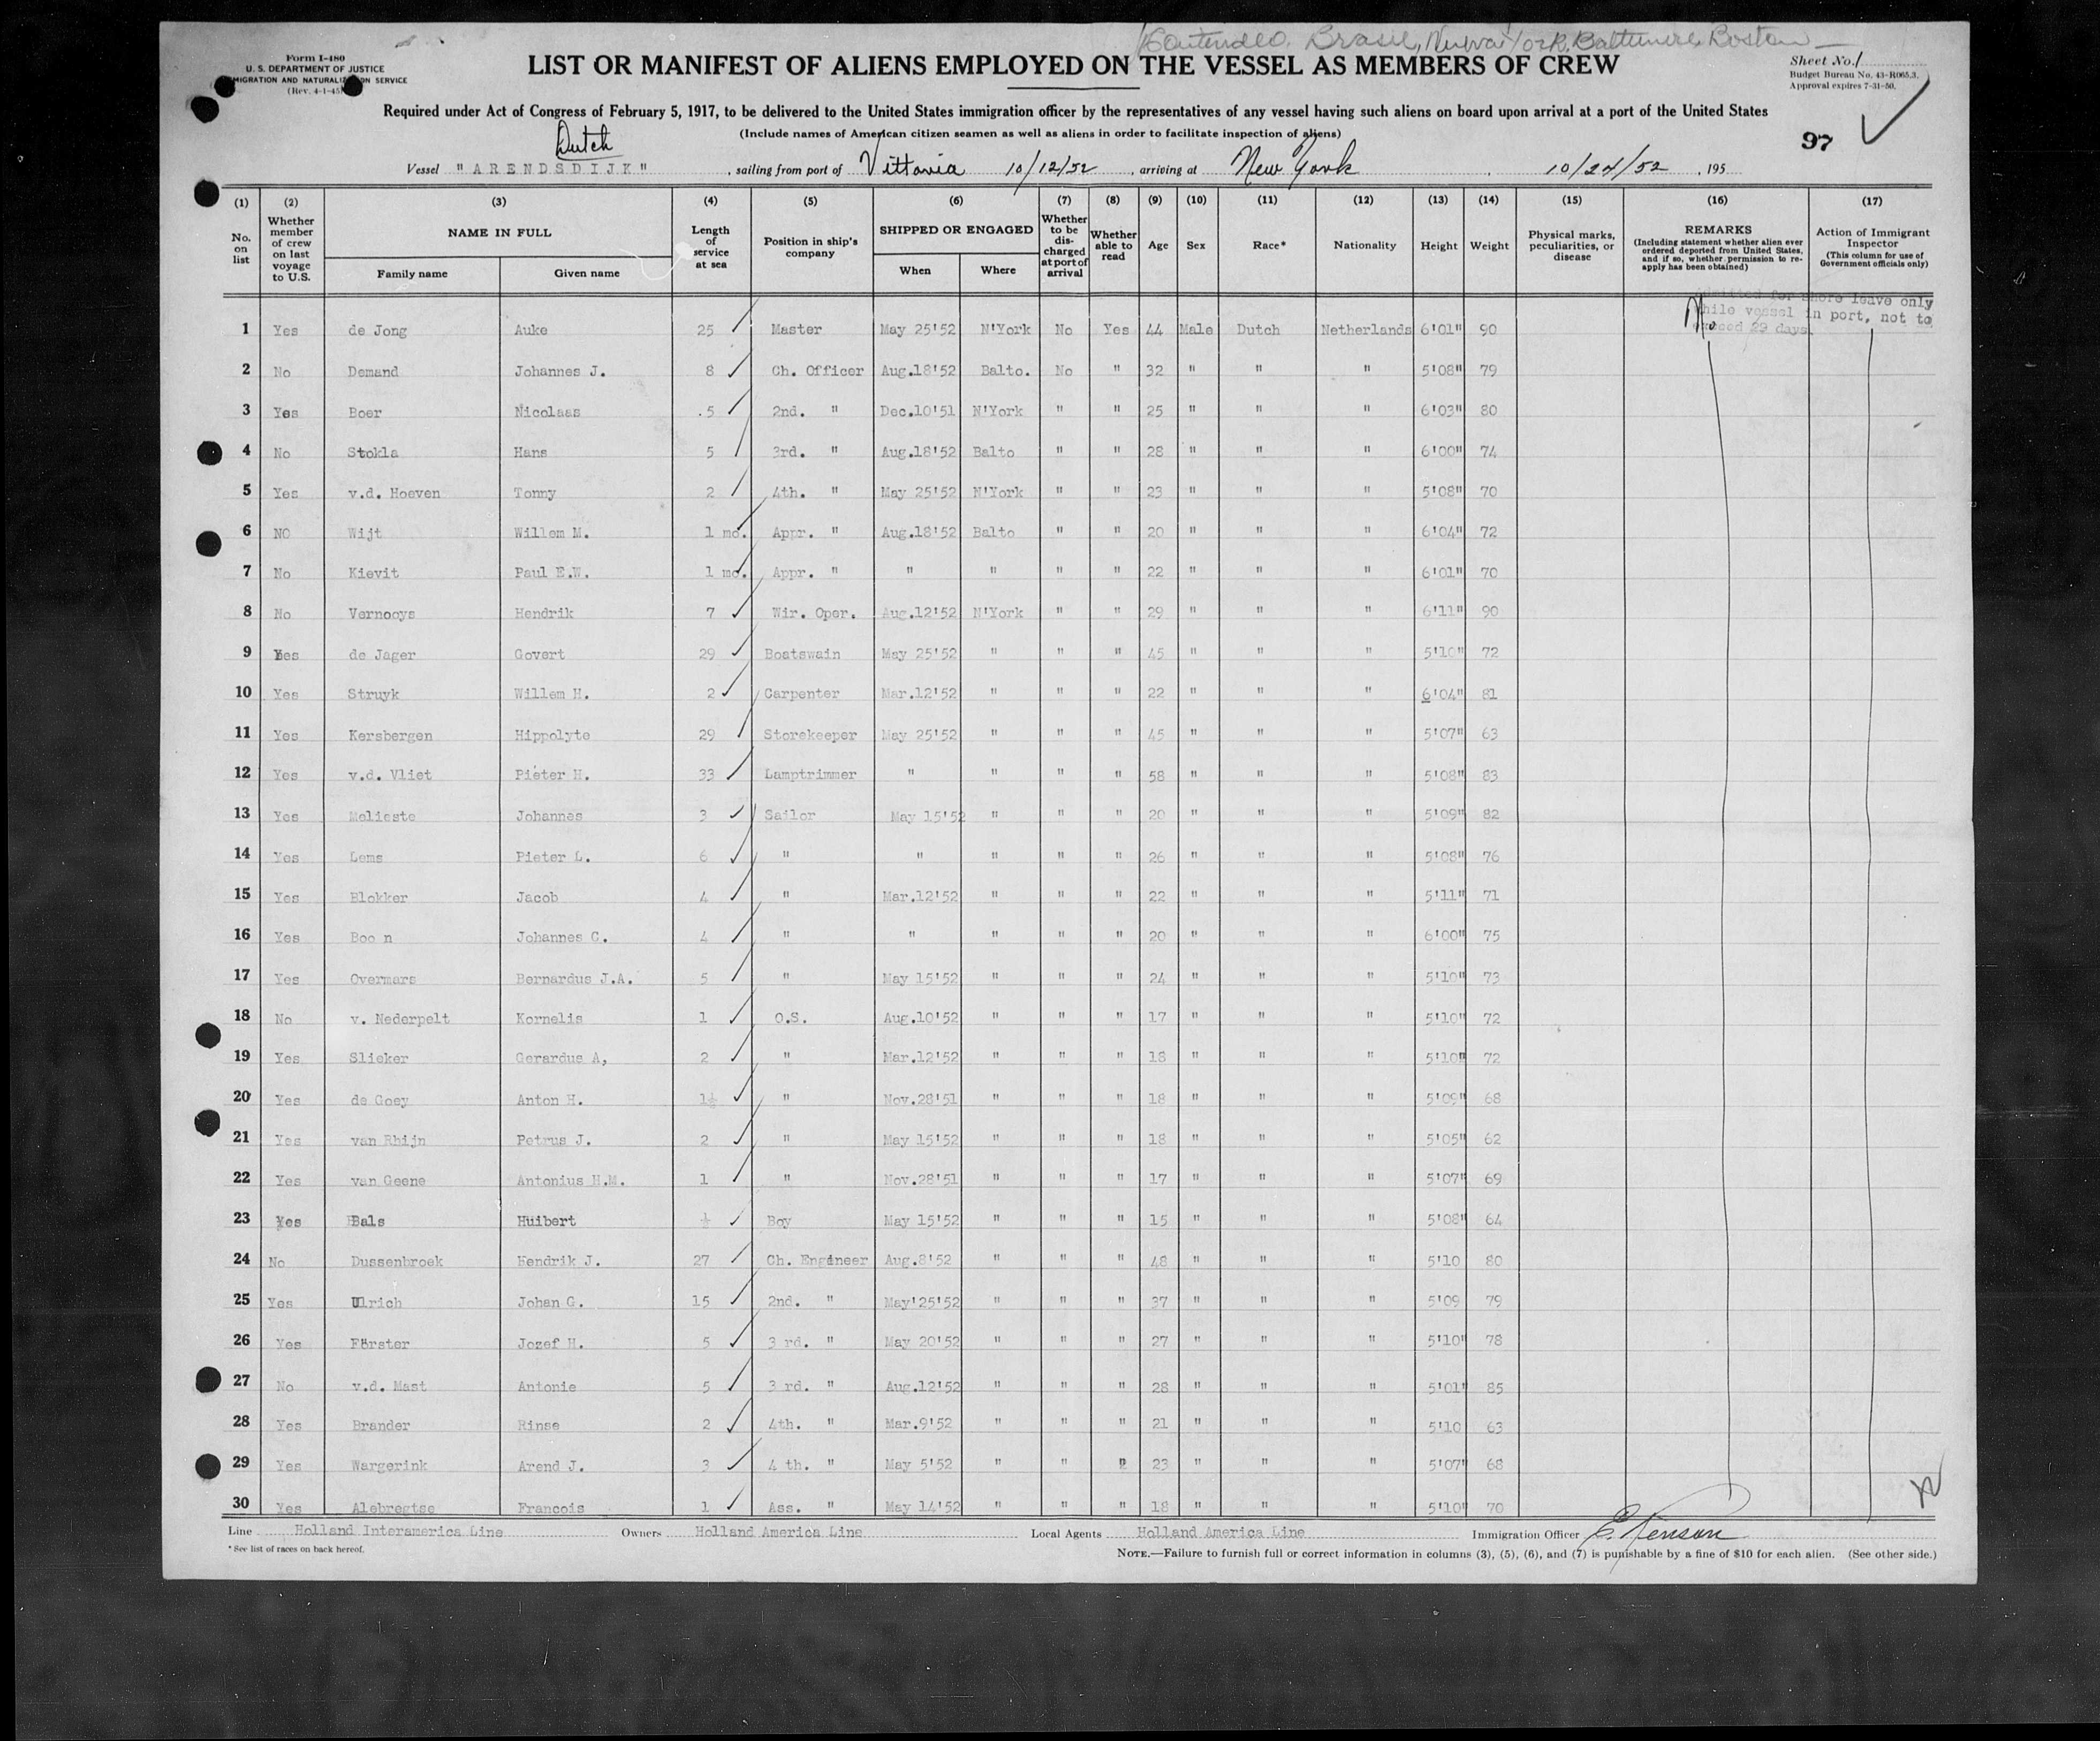 Brasil, Baltimore, Boston
Form I-480
U. S. DEPARTMENT OF JUSTICE
IMMIGRATION AND NATURALIZATION SERVICE
(Rev. 4-1-45)
LIST OR MANIFEST OF ALIENS EMPLOYED ON THE VESSEL AS MEMBERS OF CREW
Sheet No. 1
Budget Bureau No. 43-R065.3.
Approval expires 7-31-50.
Required under Act of Congress of February 5, 1917, to be delivered to the United States immigration officer by the representatives of any vessel having such aliens on board upon arrival at a port of the United States
(Include names of American citizen seamen as well as aliens in order to facilitate inspection of aliens)
97
Dutch
Vessel "ARENDSDIJK", sailing from port of Vittoria 10/12/52, arriving at New York, 10/24/52, 195
(1) (2) (3) (4) (5) (6) (7) (8) (9) (10) (11) (12) (13) (14) (15) (16) (17)
No. on list Whether member of crew on last voyage to U.S. NAME IN FULL Family name Given name Length of service at sea Position in ship's company SHIPPED OR ENGAGED When Where Whether to be discharged at port of arrival Whether able to read Age Sex Race* Nationality Height Weight Physical marks, peculiarities, or disease REMARKS (Including statement whether alien ever ordered deported from United States, and if so, whether permission to reapply has been obtained) Action of Immigrant Inspector (This column for use of Government officials only)
Admitted for shore leave only
while vessel in port, not to
exceed 29 days.
1 Yes de Jong Auke 25 Master May 25'52 N'York No Yes 44 Male Dutch Netherlands 6'01" 90 No
2 No Demand Johannes J. 8 Ch. Officer Aug.18'52 Balto. No " 32 " " " 5'08" 79
3 Yes Boer Nicolaas .5 2nd. " Dec.10'51 N'York " " 25 " " " 6'03" 80
4 No Stokla Hans 5 3rd. " Aug.18'52 Balto " " 28 " " " 6'00" 74
5 Yes v.d. Hoeven Tonny 2 4th. " May 25'52 N'York " " 23 " " " 5'08" 70
6 NO Wijt Willem M. 1 mo. Appr. " Aug.18'52 Balto " " 20 " " " 6'04" 72
7 No Kievit Paul E.W. 1 mo. Appr. " " " " " 22 " " " 6'01" 70
8 No Vernooys Hendrik 7 Wir. Oper. Aug.12'52 N'York " " 29 " " " 6'11" 90
9 Yes de Jager Govert 29 Boatswain May 25'52 " " " 45 " " " 5'10" 72
10 Yes Struyk Willem H. 2 Carpenter Mar.12'52 " " " 22 " " " 6'04" 81
11 Yes Kersbergen Hippolyte 29 Storekeeper May 25'52 " " " 45 " " " 5'07" 63
12 Yes v.d. Vliet Pieter H. 33 Lamptrimmer " " " " 58 " " " 5'08" 83
13 Yes Molieste Johannes 3 Sailor May 15'52 " " " 20 " " " 5'09" 82
14 Yes Lems Pieter L. 6 " " " " " 26 " " " 5'08" 76
15 Yes Blokker Jacob 4 " Mar.12'52 " " " 22 " " " 5'11" 71
16 Yes Boo n Johannes C. 4 " " " " " 20 " " " 6'00" 75
17 Yes Overmars Bernardus J.A. 5 " May 15'52 " " " 24 " " " 5'10" 73
18 No v. Nederpelt Kornelis 1 O.S. Aug.10'52 " " " 17 " " " 5'10" 72
19 Yes Slieker Gerardus A, 2 " Mar.12'52 " " " 18 " " " 5'10" 72
20 Yes de Goey Anton H. 1½ " Nov.28'51 " " " 18 " " " 5'09" 68
21 Yes van Rhijn Petrus J. 2 " May 15'52 " " " 18 " " " 5'05" 62
22 Yes van Geene Antonius H.M. 1 " Nov.28'51 " " " 17 " " " 5'07" 69
23 Yes Bals Huibert ½ Boy May 15'52 " " " 15 " " " 5'08" 64
24 No Dussenbroek Hendrik J. 27 Ch. Engineer Aug.8'52 " " " 48 " " " 5'10 80
25 Yes Ulrich Johan G. 15 2nd. " May'25'52 " " " 37 " " " 5'09 79
26 Yes Förster Jozef H. 5 3 rd. " May 20'52 " " " 27 " " " 5'10" 78
27 No v.d. Mast Antonie 5 3 rd. " Aug.12'52 " " " 28 " " " 5'01" 85
28 Yes Brander Rinse 2 4th. " Mar.9'52 " " " 21 " " " 5'10 63
29 Yes Wargerink Arend J. 3 4 th. " May 5'52 " " " 23 " " " 5'07" 68
30 Yes Alebregtse Francois 1 Ass. " May 14'52 " " " 18 " " " 5'10" 70
Line Holland Interamerica Line Owners Holland America Line Local Agents Holland America Line Immigration Officer
* See list of races on back hereof.
NOTE.—Failure to furnish full or correct information in columns (3), (5), (6), and (7) is punishable by a fine of $10 for each alien. (See other side.)